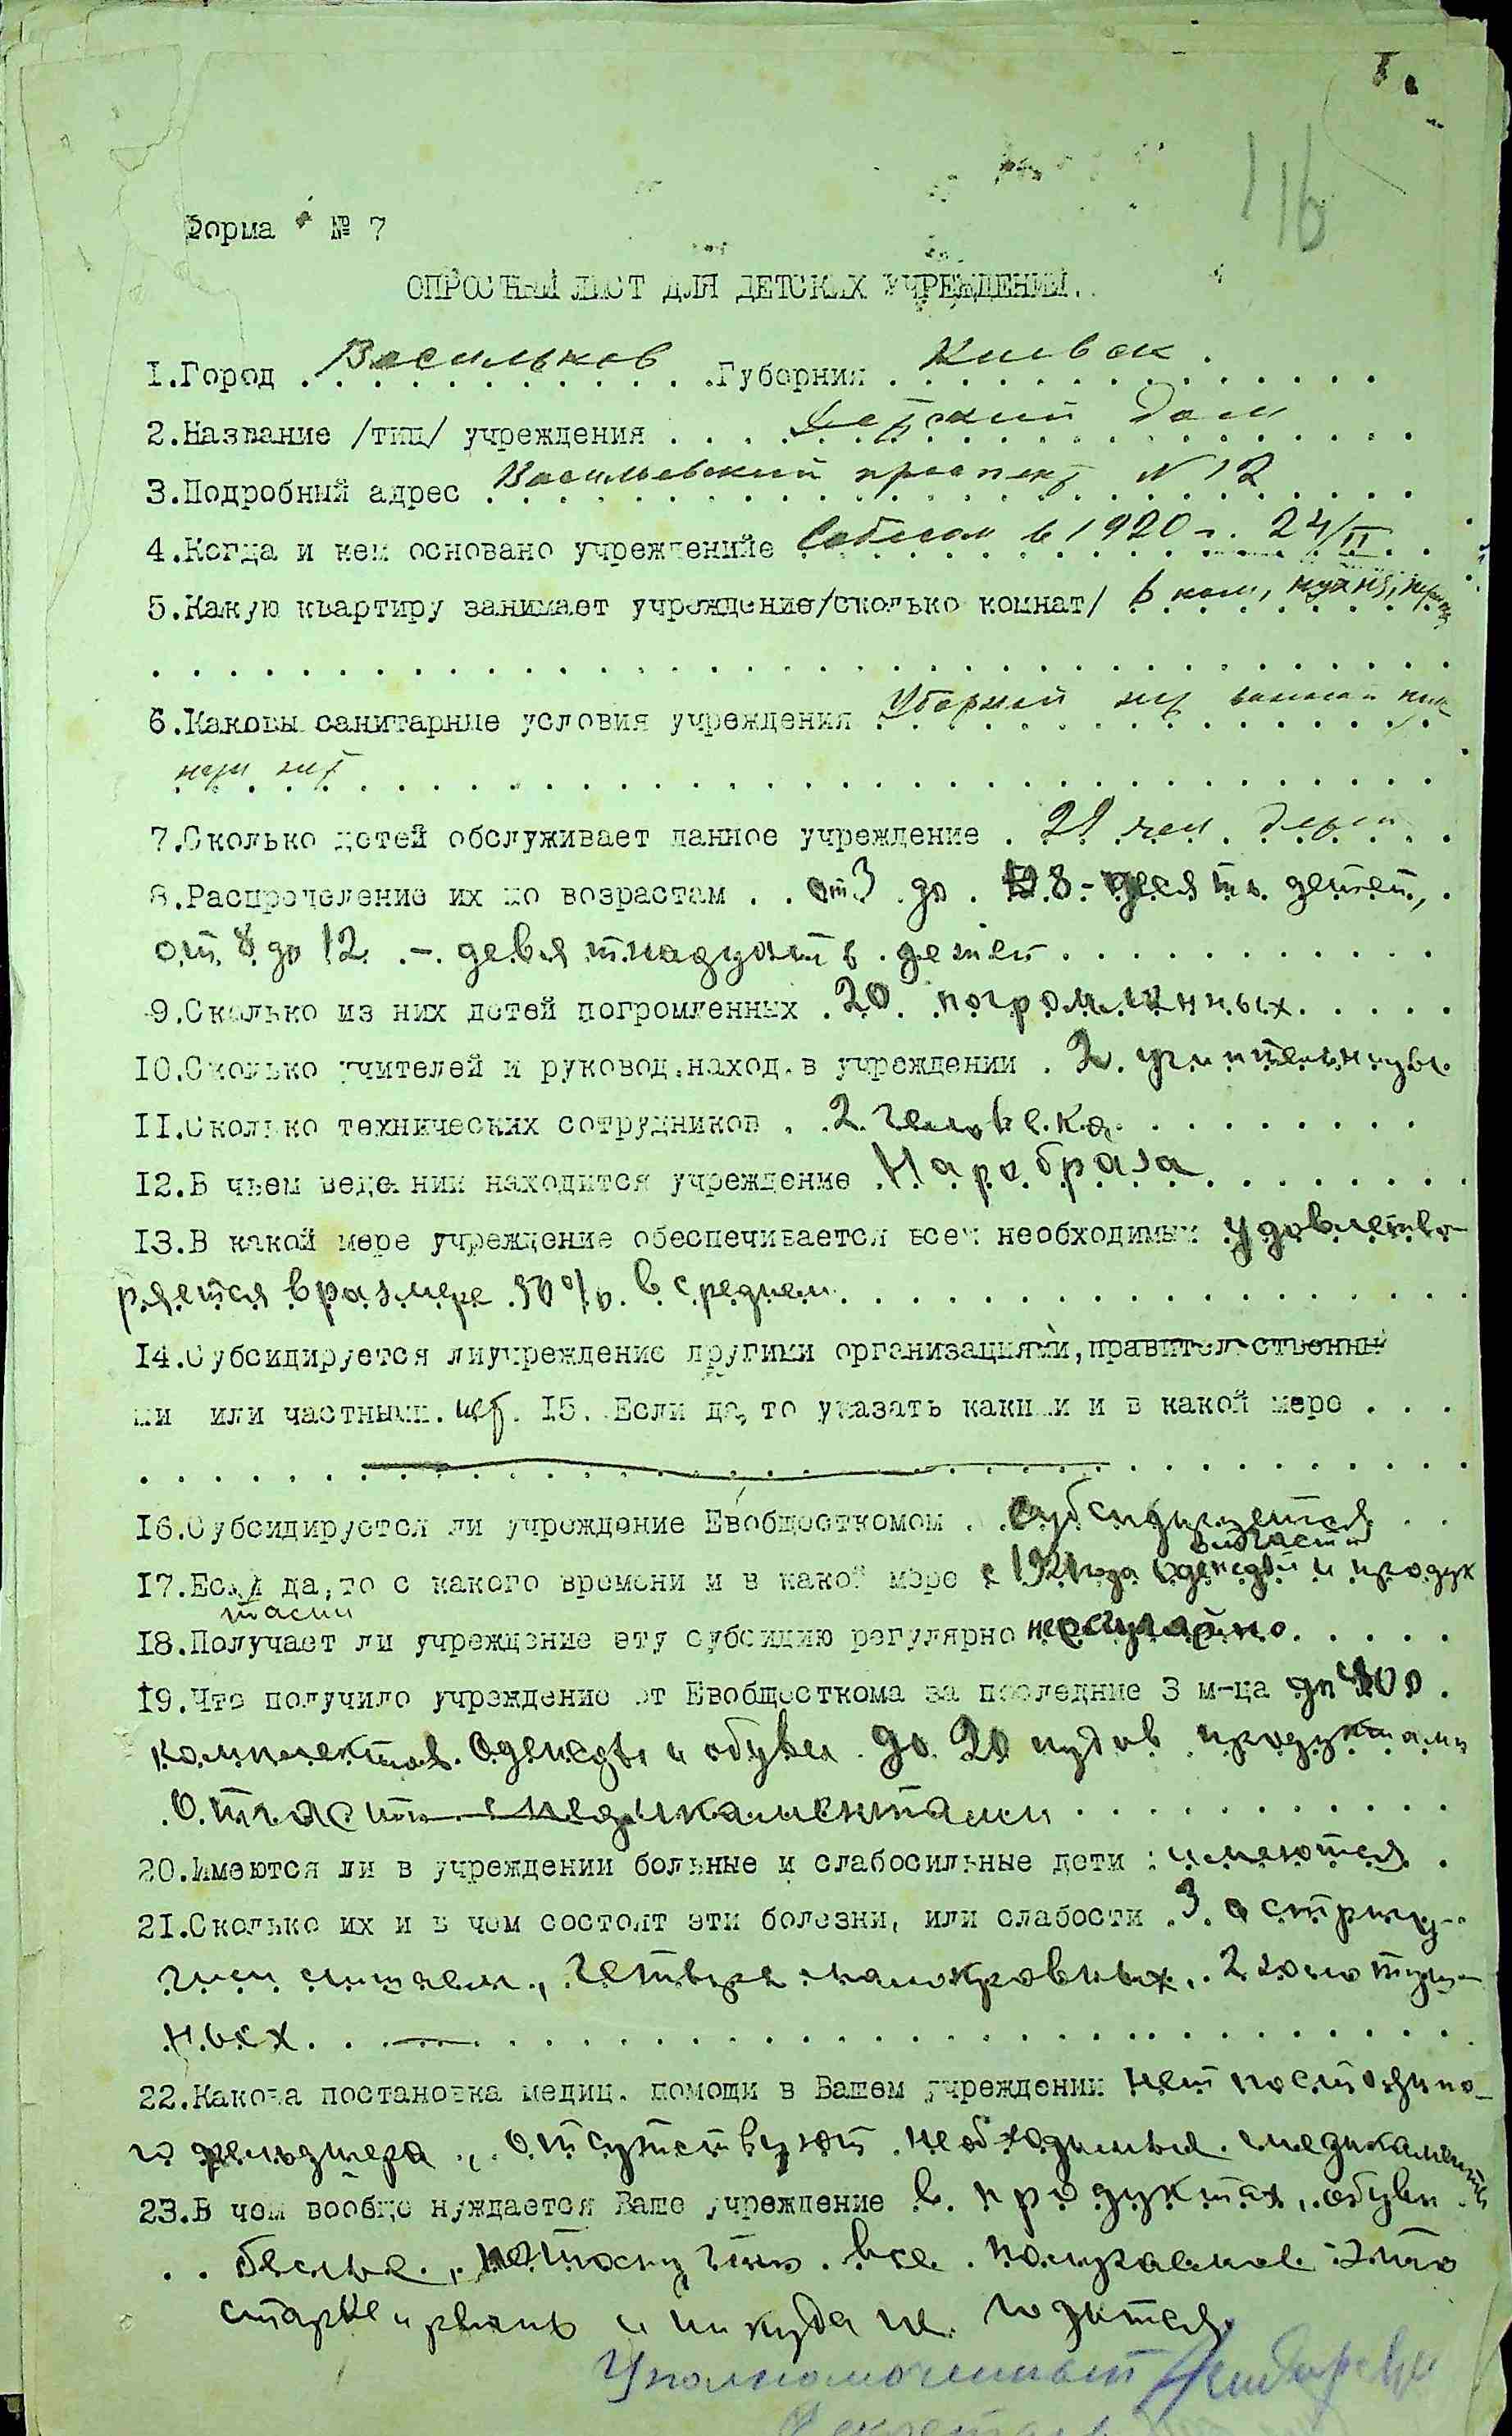 Форма № 7
ОПРОСНЫЙ ЛИСТ ДЛЯ ДЕТСКИХ УЧРЕЖДЕНИЙ.
1.Город Васильков Губерния Киевск.
2.Название /тип/ учреждения Детский дом
3.Подробный адрес Васильевский проспект № 12
4.Когда и кем основано учреждениие Собесом в 1920 г. 24/II
5.Какую квартиру занимает учреждение/сколько комнат/ 6 ком, кухня,
6.Каковы санитарные условия учреждения Уборной нет
нет
7.Сколько детей обслуживает данное учреждение 29 чел. детей
8.Распределение их по возрастам от 3 до 8 - десять детей,
от 8 до 12 - девятнадцать детей
9.Сколько из них детей погромленных 20 погромленных
10.Сколько учителей и руковод.наход.в учреждении 2 учительницы
11.Сколько технических сотрудников 2 человека
12.В чьем ведении находится учреждение Наробраза
13.В какой мере учреждение обеспечивается всем необходимым удовлетво-
ряется в размере 50% в среднем
14.Субсидируется лиучреждение другими организациями, правительственны
ми или частными. нет. 15. Если да, то указать какими и в какой мере
16.Субсидируется ли учреждение Евобщесткомом субсидируется
отчасти
17.Если да,то с какого времени и в какой мере с 1921 года одеждой и продук
тами
18.Получает ли учреждение эту субсидию регулярно нерегулярно
19.Что получило учреждение от Евобщесткома за последние 3 м-ца до
комплектов одежды и обуви до 20 пудов продуктами
отчасти медикаментами
20.Имеются ли в учреждении больные и слабосильные дети : имеются
21.Сколько их и в чем состоят эти болезни, или слабости 3 с стригу-
щим лишаем, четыре малокровных, 2 золотуш-
ных
22.Какова постановка медиц. помощи в Вашем учреждении нет постоянно-
го фельдшера, отсутствуют необходимые медикаменты
23.В чем вообще нуждается Ваше учреждение в продуктах, обуви
белье, потому что все получаемое это
старье и рвань и никуда не годится.
Уполномоченный